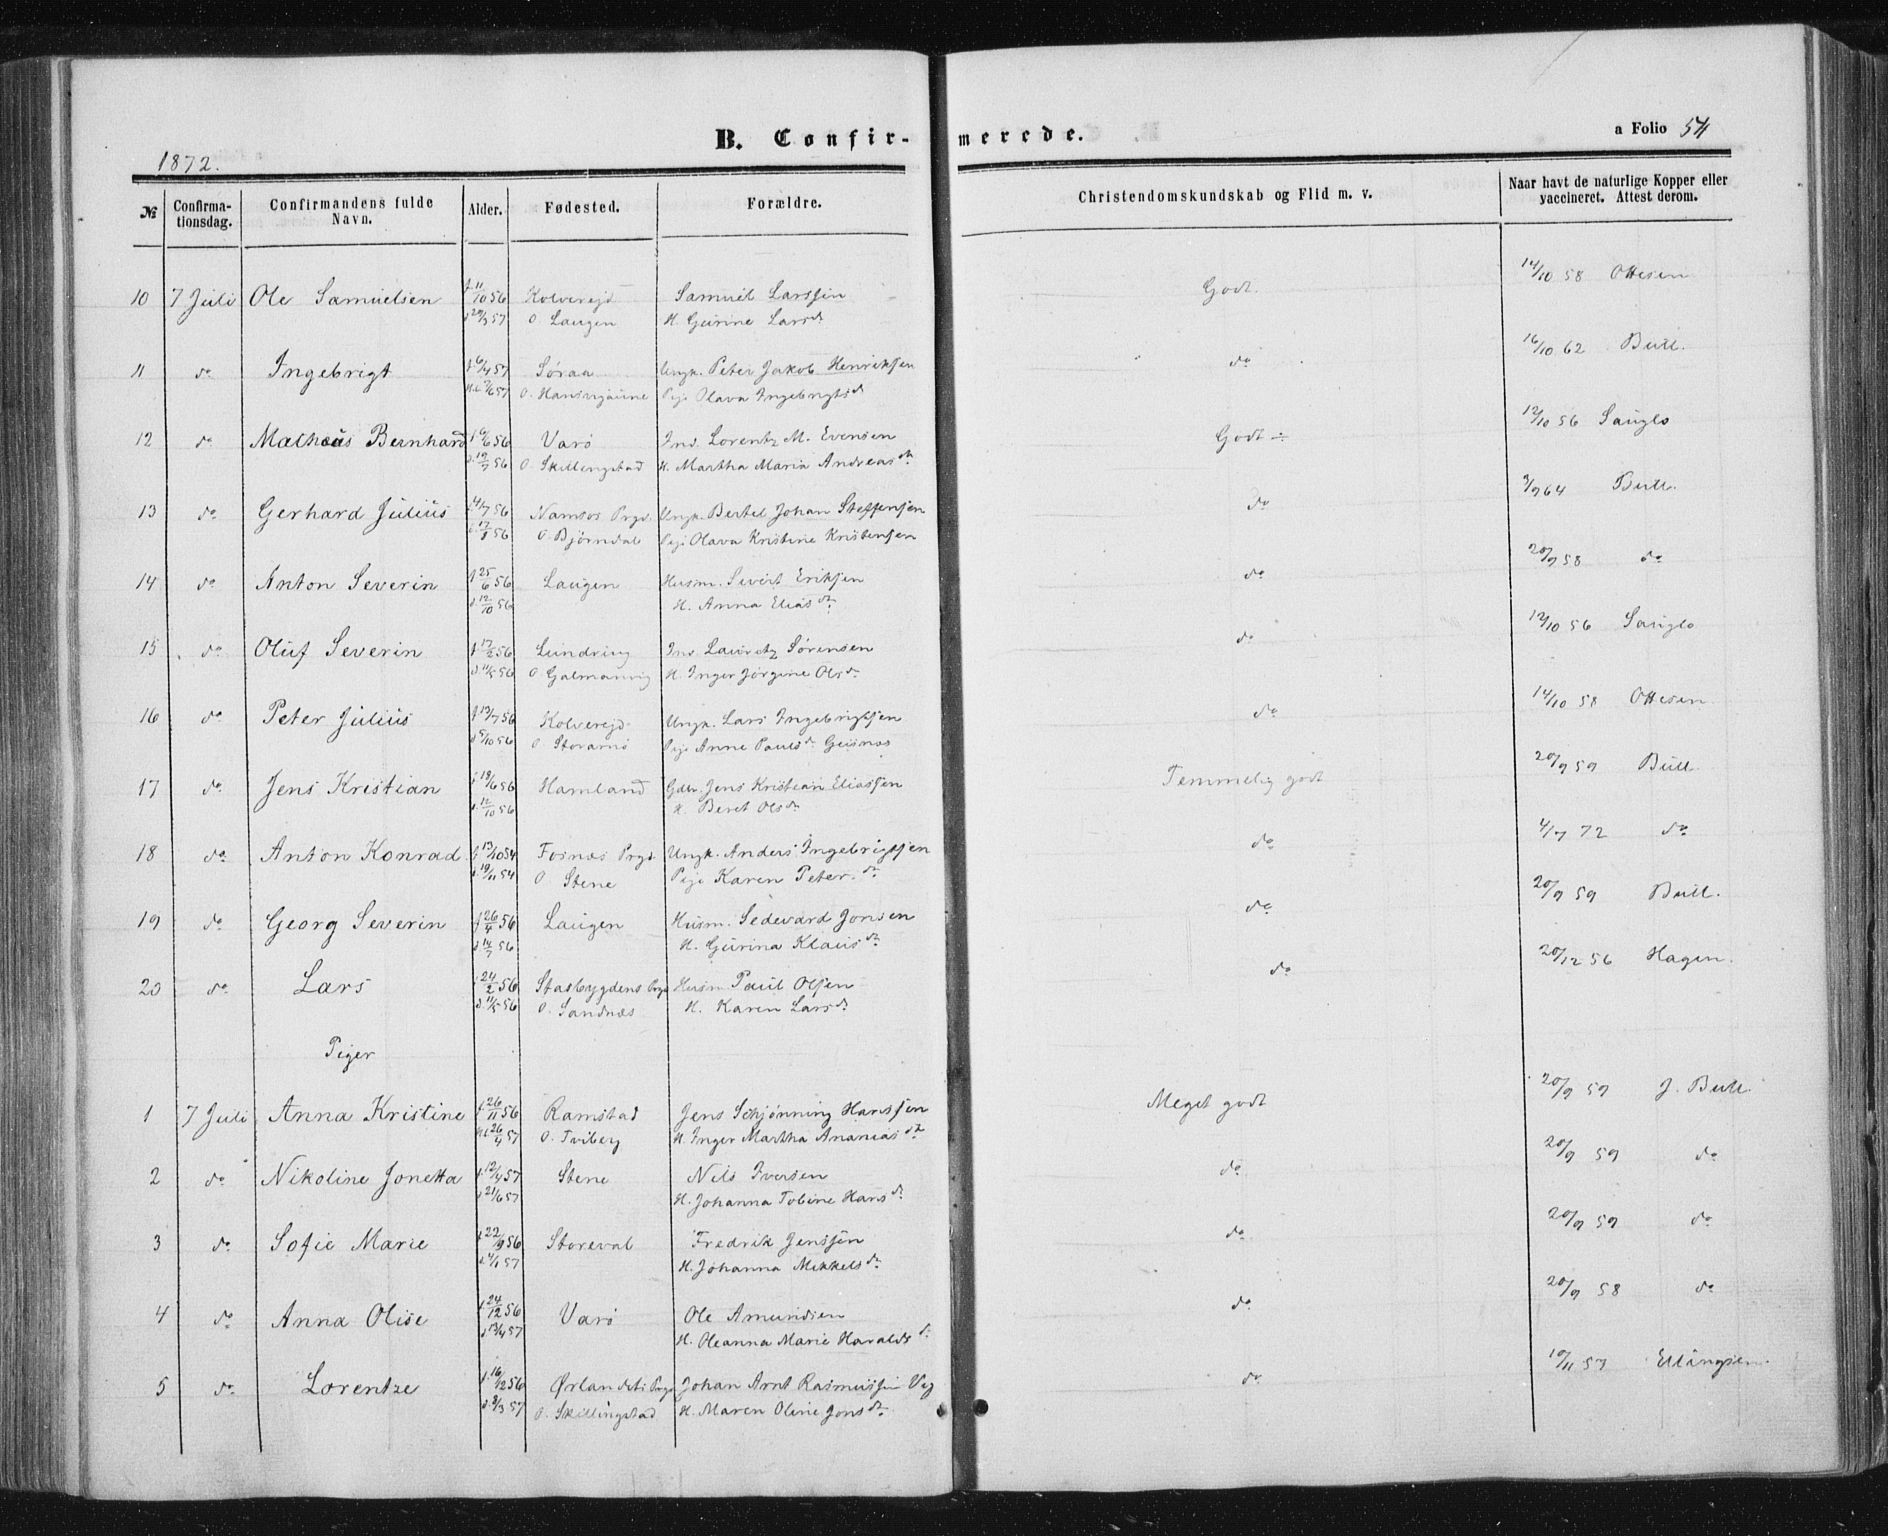 1872.
B. Confirmerede.
a Folio 54
№ Confirmationsdag. Confirmandens fulde Navn. Alder. Fødested. Forældre. Christendomskundskab og Flid m. v. Naar havt de naturlige Kopper eller vaccineret. Attest derom.
10 7 Juli Ole Samuelsen f 11/10 56 Kolvereid Samuel Larssen Godt. 14/10 58 Ottesen
O. Laugen H. Gurine Larsdr
11 do Ingebrigt f 6/4 57 Søraa Ungk. Peter Jakob Henriksen do 16/10 62 Bull.
O. Pige Olava Ingebrigtsdr
12 do Matheus Bernhard f 6/6 56 Varø Ins. Lorentz M. Evensen Godt ÷ 12/10 56 Sauglo
d. 19/7 56 O. Skillingstad H. Martha Maria Andreasdr
13 do Gerhard Julius f 4/7 56 Namsos Prgd. Ungk. Bertel Johan Steffensen do 9/9 64 Bull.
d. 17/8 56 O. Bjørndal Pige Olava Kristine Kristensen
14 do Anton Severin f 25/6 56 Laugen Husm. Sivert Eriksen do 20/9 58 do
d. 12/10 56 H. Anna Eliasdr
15 do Oluf Severin f 17/2 56 Lundring Ins. Lauretz Sørensen do 12/10 56 Sauglo
d. 11/5 56 O. Galmanvig H. Inger Jørgine Olsdr
16 do Peter Julius f 13/7 56 Kolvereid Ungk. Lars Ingebrigtsen do 14/10 58 Ottesen
d 5/10 56 O. Pige Anne Paulsdr Geisnæs
17 do Jens Kristian f 19/6 56 Hamland Gdbr. Jens Kristian Eliassen Temmelig godt 20/9 59 Bull
d. 12/10 56 H. Beret Olsdr
18 do Anton Konrad f 13/10 54 Fosnæs Prgd. Ungk. Anders Ingebrigtsen do 4/7 72 do
d. 19/11 54 O. Stene Pige Karen Peter.dr
19 do Georg Severin f 26/4 56 Laugen Husm. Sedevard Jonsen do 20/9 59 Bull.
d 14/7 56 H. Gurina Klausdr
20 do Lars f 24/2 56 Stasbygdens Prgd Husm Paul Olsen do 20/12 56 Hagen.
d. 11/5 56 O. Sandnæs H. Karen Larsdr
Piger
1 7 Juli Anna Kristine f 26/11 56 Ramstad Jens Schjønning Hanssen Meget godt 20/9 59 J. Bull.
26/4 57 O. Tviberg H. Inger Martha Ananiasdr
2 do Nikoline Jonetta f. 12/4 57 Stene Nils Iversen do 20/9 59 do
d 21/6 57 H. Johanna Tobine Hansdr
3 do Sofie Marie f 22/9 56 Storeval Fredrik Jenssen do 20/9 59 do
d 4/1 57 H. Johanna Mikkelsdr
4 do Anna Olise f 24/12 56 Varø Ole Amundsen do 20/9 58 do
d 13/4 57 H. Oleanna Marie Haraldsdr
5 do Lorentze f. 16/12 56 Ørlandets Prgd Johan Arnt Rasmussen Vig do 10/11 57 Ellingsen.
d. 8/3 57 O. Skillingstad H. Maren Oline Jonsdr